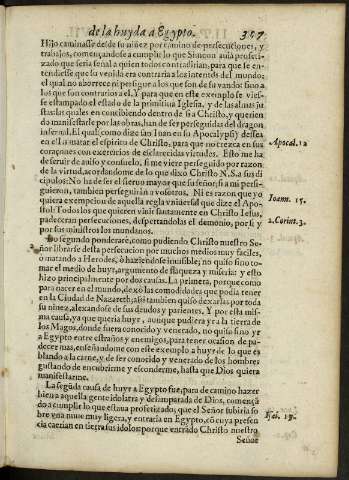 de la huyda a Egypto. 357
Hijo caminasse desde su niñez por camino de persecuciones, y
trabajos, començandose a cumplir lo que Simeon auia profeti-
zado que seria señal a quien todos contradirian, para que se en-
tendiesse que su venida era contraria a los intentos del mundo:
el qual no aborrece ni persigue a los que son de su vando sino a
los que son contrarios a el. Y para que en este exemplo se vies-
se estampado el estado de la primitiua Iglesia, y de las almas ju
stas, las quales en concibiendo dentro de si a Christo, y querien
do manifestarle por las obras, han de ser perseguidas del dragon
infernal. El qual como dize san Iuan en su Apocalypsi dessea
en ellas matar el espiritu de Christo, para que no crezca en sus
coraçones con exercicios de esclarecidas virtudes. Esto me ha
de seruir de auiso y consuelo, si me viere perseguido por razon
de la virtud, acordandome de lo que dixo Christo N.S. a sus di
cipulos: No ha de ser el sieruo mayor que su señor, si a mi persi-
guieron, tambien perseguiràn a vosotros. Ni es razon que yo
quiera exempcion de aquella regla vniuersal que dize el Apo-
stol: Todos los que quieren viuir santamente en Christo Iesus,
padeceran persecuciones, despertandolas el demonio, por si y
por sus ministros los mundanos.
Lo segundo ponderarè, como pudiendo Christo nuestro Se-
ñor librarse desta persecucion por muchos medios muy faciles,
o matando a Herodes, ò haziendose inuisible, no quiso sino to-
mar el medio de huyr, argumento de flaqueza y miseria: y esto
hizo principalmente por dos causas. La primera, porque como
para nacer en el mundo, dexò las comodidades que podia tener
en la Ciudad de Nazareth; assi tambien quiso dexarlas por toda
su niñez, alexandose de sus deudos y parientes. Y por esta mis-
ma causa, ya que queria huyr, aunque pudiera yr a la tierra de
los Magos, donde fuera conocido y venerado, no quiso sino yr
a Egypto entre estraños y enemigos, para tener ocasion de pa-
decer mas, enseñandome con este exemplo a huyr de lo que es
blando a la carne, y de ser conocido y venerado de los hombres
gustando de encubrirme y esconderme, hasta que Dios quiera
manifestarme.
La segũda causa de huyr a Egypto fue, para de camino hazer
bien a aquella gente idolatra y desamparada de Dios, comença
do a cumplir lo que estaua profetizado; que el Señor subiria so-
bre vna nuue muy ligera, y entraria en Egypto, cõ cuya presen
cia caerian en tierra sus idolos: porque entrado Christo nuestro
Señor
Apocal. 12
Ioann. 15.
2. Corint. 3.
Esai. 19.